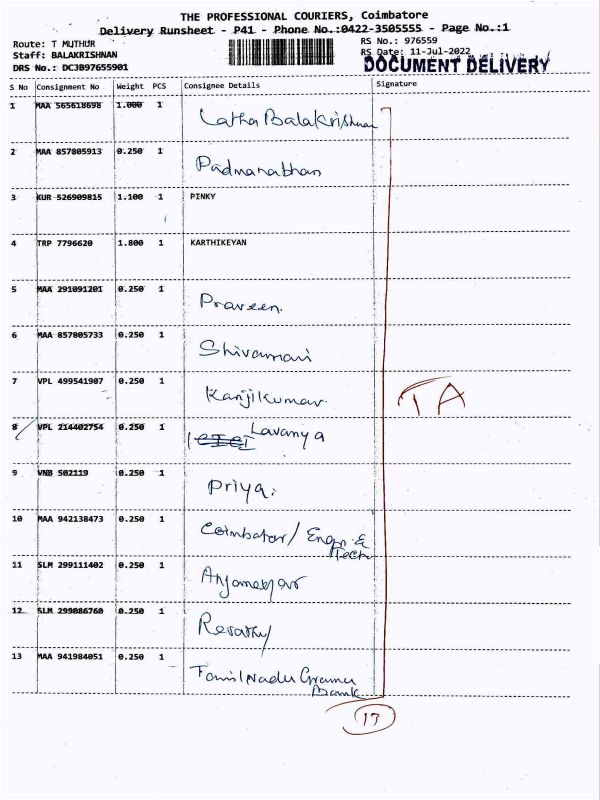 THE PROFESSIONAL COURIERS, Coimbatore
Delivery Runsheet - P41 - Phone No.:0422-3505555 - Page No.:1
Route: T MUTHUR
RS No.: 976559
Staff: BALAKRISHNAN
RS Date: 11-Jul-2022
DRS No.: DCJB97655901
DOCUMENT DELIVERY
S No Consignment No Weight PCS Consignee Details Signature
1 MAA 565618698 1.000 1 Latha Balakrishnan
2 MAA 857805913 0.250 1 Padmanabhan
3 KUR 526909815 1.100 1 PINKY
4 TRP 7796620 1.800 1 KARTHIKEYAN
5 MAA 291091201 0.250 1 Praveen
6 MAA 857805733 0.250 1 Shivamani
7 VPL 499541907 0.250 1 Kanjikumar
TA
8 VPL 214402754 0.250 1 Lavanya
9 VNB 502119 0.250 1 Priya
10 MAA 942138473 0.250 1 Coimbator / Engn &
Tech
11 SLM 299111402 0.250 1
12 SLM 299086760 0.250 1 Revathy
13 MAA 941984051 0.250 1 Tamil Nadu Grama
Bank
13